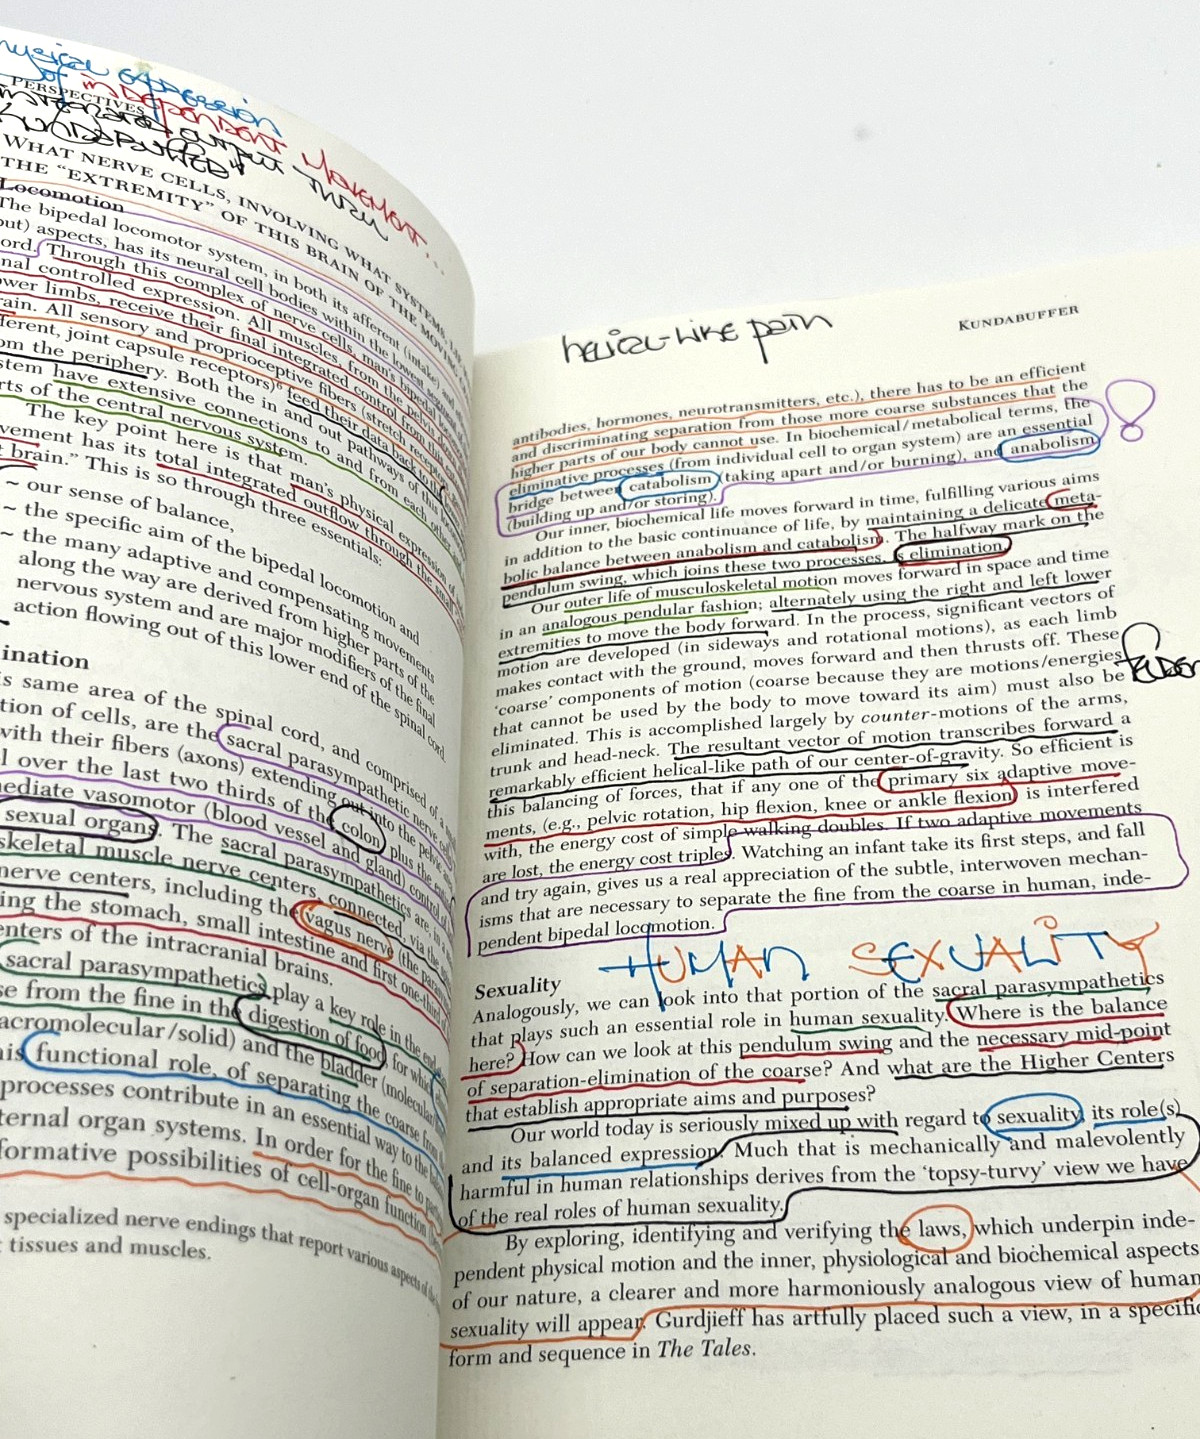 physical expression
of independent movement...
PERSPECTIVES
thru
WHAT NERVE CELLS, INVOLVING WHAT SYSTEMS,
THE “EXTREMITY” OF THIS BRAIN OF THE MOVING
Locomotion
The bipedal locomotor system, in both its afferent (intake)
out) aspects, has its neural cell bodies within the lowest
ord. Through this complex of nerve cells, man's bipedal
nal controlled expression. All muscles, from the pelvis
ower limbs, receive their final integrated control from this
rain. All sensory and proprioceptive fibers (stretch receptors
ferent, joint capsule receptors)⁶ feed their data back to
om the periphery. Both the in and out pathways of this
stem have extensive connections to and from each other
rts of the central nervous system.
The key point here is that man's physical expression of
vement has its total integrated outflow through the small
t brain.” This is so through three essentials:
~ our sense of balance,
~ the specific aim of the bipedal locomotion and
~ the many adaptive and compensating movements
along the way are derived from higher parts of the
nervous system and are major modifiers of the final
action flowing out of this lower end of the spinal cord.
ination
is same area of the spinal cord, and comprised of a
tion of cells, are the sacral parasympathetic nerve
with their fibers (axons) extending out into the pelvic
l over the last two thirds of the colon, plus the
mediate vasomotor (blood vessel and gland) control of
sexual organs. The sacral parasympathetics are, in
skeletal muscle nerve centers, connected, via the
nerve centers, including the vagus nerve (the
ing the stomach, small intestine and first one-third
enters of the intracranial brains.
sacral parasympathetics play a key role in the
se from the fine in the digestion of food, for which
acromolecular/solid) and the bladder (molecular
is functional role, of separating the coarse from
processes contribute in an essential way to the
ternal organ systems. In order for the fine to
formative possibilities of cell-organ function
specialized nerve endings that report various aspects of the
tissues and muscles.
helical-like path
KUNDABUFFER
antibodies, hormones, neurotransmitters, etc.), there has to be an efficient
and discriminating separation from those more coarse substances that the
higher parts of our body cannot use. In biochemical/metabolical terms, the
eliminative processes (from individual cell to organ system) are an essential
bridge between catabolism (taking apart and/or burning), and anabolism
(building up and/or storing).
Our inner, biochemical life moves forward in time, fulfilling various aims
in addition to the basic continuance of life, by maintaining a delicate meta-
bolic balance between anabolism and catabolism. The halfway mark on the
pendulum swing, which joins these two processes, is elimination.
Our outer life of musculoskeletal motion moves forward in space and time
in an analogous pendular fashion; alternately using the right and left lower
extremities to move the body forward. In the process, significant vectors of
motion are developed (in sideways and rotational motions), as each limb
makes contact with the ground, moves forward and then thrusts off. These
‘coarse’ components of motion (coarse because they are motions/energies
that cannot be used by the body to move toward its aim) must also be
eliminated. This is accomplished largely by counter-motions of the arms,
trunk and head-neck. The resultant vector of motion transcribes forward a
remarkably efficient helical-like path of our center-of-gravity. So efficient is
this balancing of forces, that if any one of the primary six adaptive move-
ments, (e.g., pelvic rotation, hip flexion, knee or ankle flexion) is interfered
with, the energy cost of simple walking doubles. If two adaptive movements
are lost, the energy cost triples. Watching an infant take its first steps, and fall
and try again, gives us a real appreciation of the subtle, interwoven mechan-
isms that are necessary to separate the fine from the coarse in human, inde-
pendent bipedal locomotion.
HUMAN SEXUALITY
Sexuality
Analogously, we can look into that portion of the sacral parasympathetics
that plays such an essential role in human sexuality. Where is the balance
here? How can we look at this pendulum swing and the necessary mid-point
of separation-elimination of the coarse? And what are the Higher Centers
that establish appropriate aims and purposes?
Our world today is seriously mixed up with regard to sexuality, its role(s)
and its balanced expression. Much that is mechanically and malevolently
harmful in human relationships derives from the ‘topsy-turvy’ view we have
of the real roles of human sexuality.
By exploring, identifying and verifying the laws, which underpin inde-
pendent physical motion and the inner, physiological and biochemical aspects
of our nature, a clearer and more harmoniously analogous view of human
sexuality will appear. Gurdjieff has artfully placed such a view, in a specific
form and sequence in The Tales.